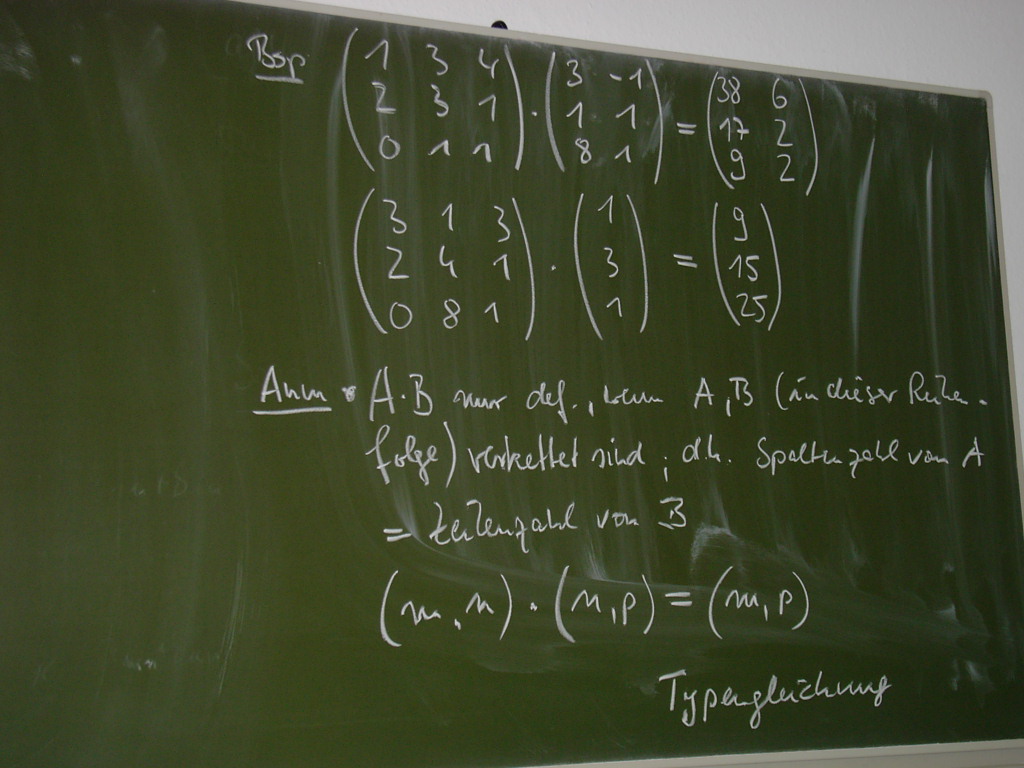 Bsp (1 3 4 / 2 3 1 / 0 1 1) · (3 -1 / 1 1 / 8 1) = (38 6 / 17 2 / 9 2)
(3 1 3 / 2 4 1 / 0 8 1) · (1 / 3 / 1) = (9 / 15 / 25)
Anm • A·B nur def., wenn A,B (in dieser Reihen-
folge) verkettet sind, dh. Spaltenzahl von A
= Zeilenzahl von B
(m,n) · (n,p) = (m,p)
Typengleichung